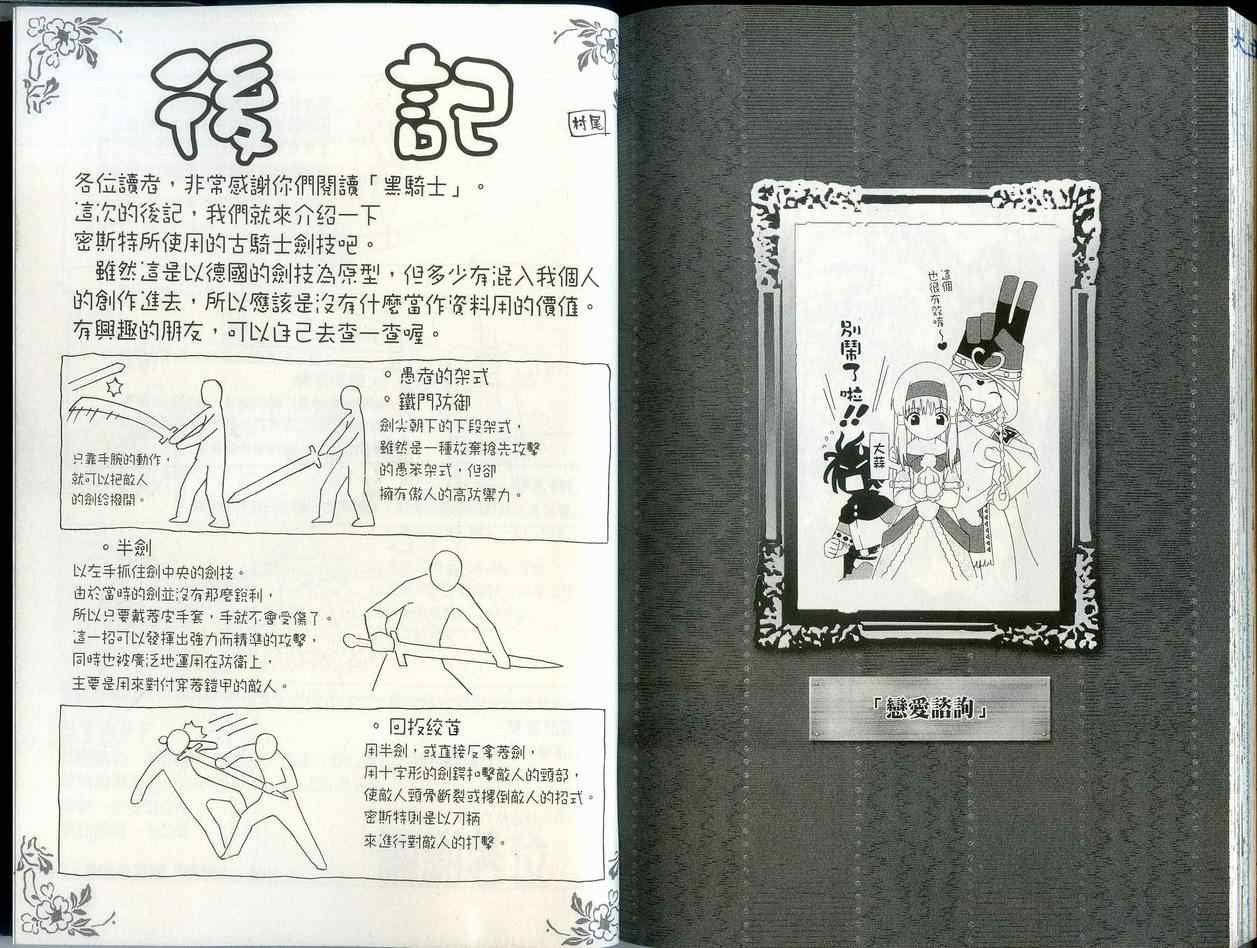 後記
村尾
各位讀者，非常感謝你們閱讀「黑騎士」。
這次的後記，我們就來介紹一下
密斯特所使用的古騎士劍技吧。
雖然這是以德國的劍技為原型，但多少有混入我個人
的創作進去，所以應該是沒有什麼當作資料用的價值。
有興趣的朋友，可以自己去查一查喔。
。愚者的架式
。鐵門防御
劍尖朝下的下段架式，
雖然是一種放棄搶先攻擊
的愚笨架式，但卻
擁有傲人的高防禦力。
只靠手腕的動作，
就可以把敵人
的劍給撥開。
。半劍
以左手抓住劍中央的劍技。
由於當時的劍並沒有那麼銳利，
所以只要戴著皮手套，手就不會受傷了。
這一招可以發揮出強力而精準的攻擊，
同時也被廣泛地運用在防衛上，
主要是用來對付穿著鎧甲的敵人。
。回扳絞首
用半劍，或直接反拿著劍，
用十字形的劍鍔扣擊敵人的頸部，
使敵人頸骨斷裂或摟倒敵人的招式。
密斯特則是以刀柄
來進行對敵人的打擊。
這個
也很有效唷～♥
別鬧了啦!!
大蒜
「戀愛諮詢」